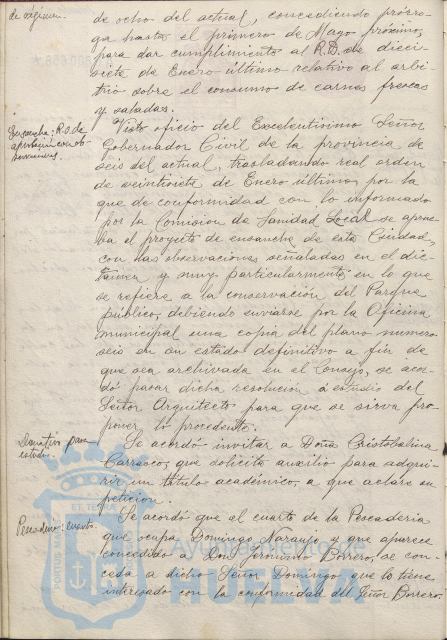 de régimen.
de ocho del actual, concediendo prórro-
ga hasta el primero de Mayo próximo,
para dar cumplimiento al R.D. de dieci-
siete de Enero último relativo al arbi-
trio sobre el consumo de carnes frescas
y saladas.
Ensanche; R.O. de
aprobación con ob-
servaciones.
Visto oficio del Excelentísimo Señor
Gobernador Civil de la provincia de
seis del actual, trasladando real orden
de veintisiete de Enero último, por la
que de conformidad con lo informado
por la Comisión de Sanidad Local se aprue-
ba el proyecto de ensanche de esta Ciudad,
con las observaciones señaladas en el dic-
tamen y muy particularmente en lo que
se refiere a la conservación del Parque
público, debiendo enviarse por la Oficina
municipal una copia del plano numero
seis en su estado definitivo a fin de
que sea archivada en el Consejo, se acor-
dó pasar dicha resolución a estudio del
Señor Arquitecto para que se sirva pro-
poner lo procedente.
Donativo para
estudio.
Se acordó invitar a Doña Cristobalina
Carrasco, que solicita auxilio para adqui-
rir un título académico, a que aclare su
petición.
Pescadería; cuarto.
Se acordó que el cuarto de la Pescadería
que ocupa Domingo Naranjo y que aparece
concedido a Don Jerónimo Borrero, se con-
ceda a dicho Señor Domingo que lo tiene
interesado con la conformidad del Señor Borrero.
Ayuntamiento de
HUELVA
PORTUS MARIS ET TERRAE